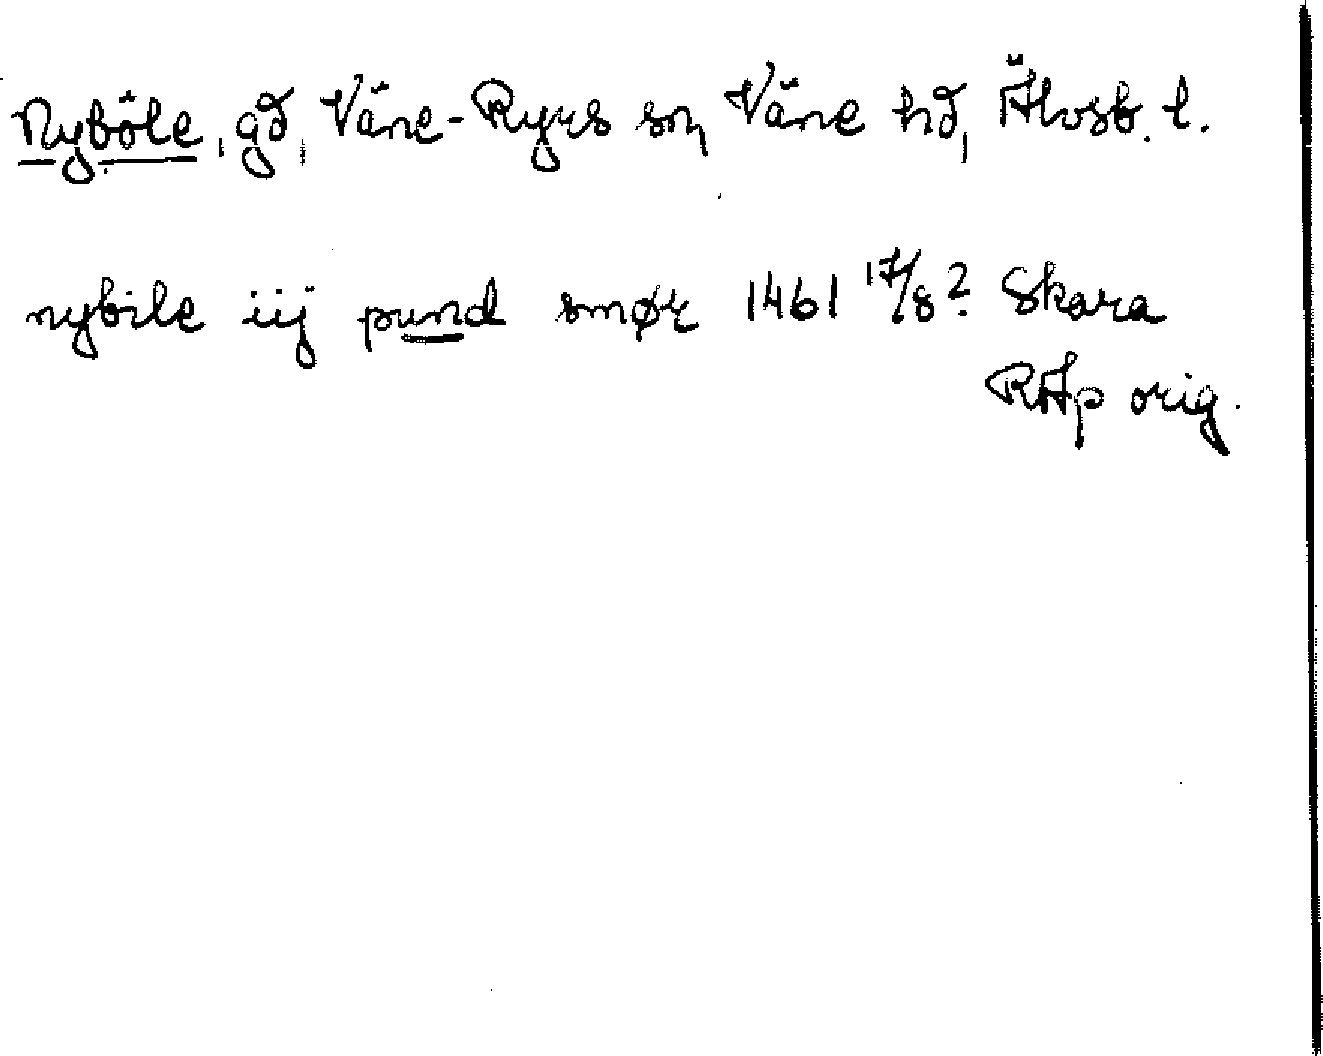 Nyböle, gd, Väne-Ryrs sn, Väne hd, Älvsb. l.
nybile iij pund smør 1461 17/8? Skara
RAp orig.